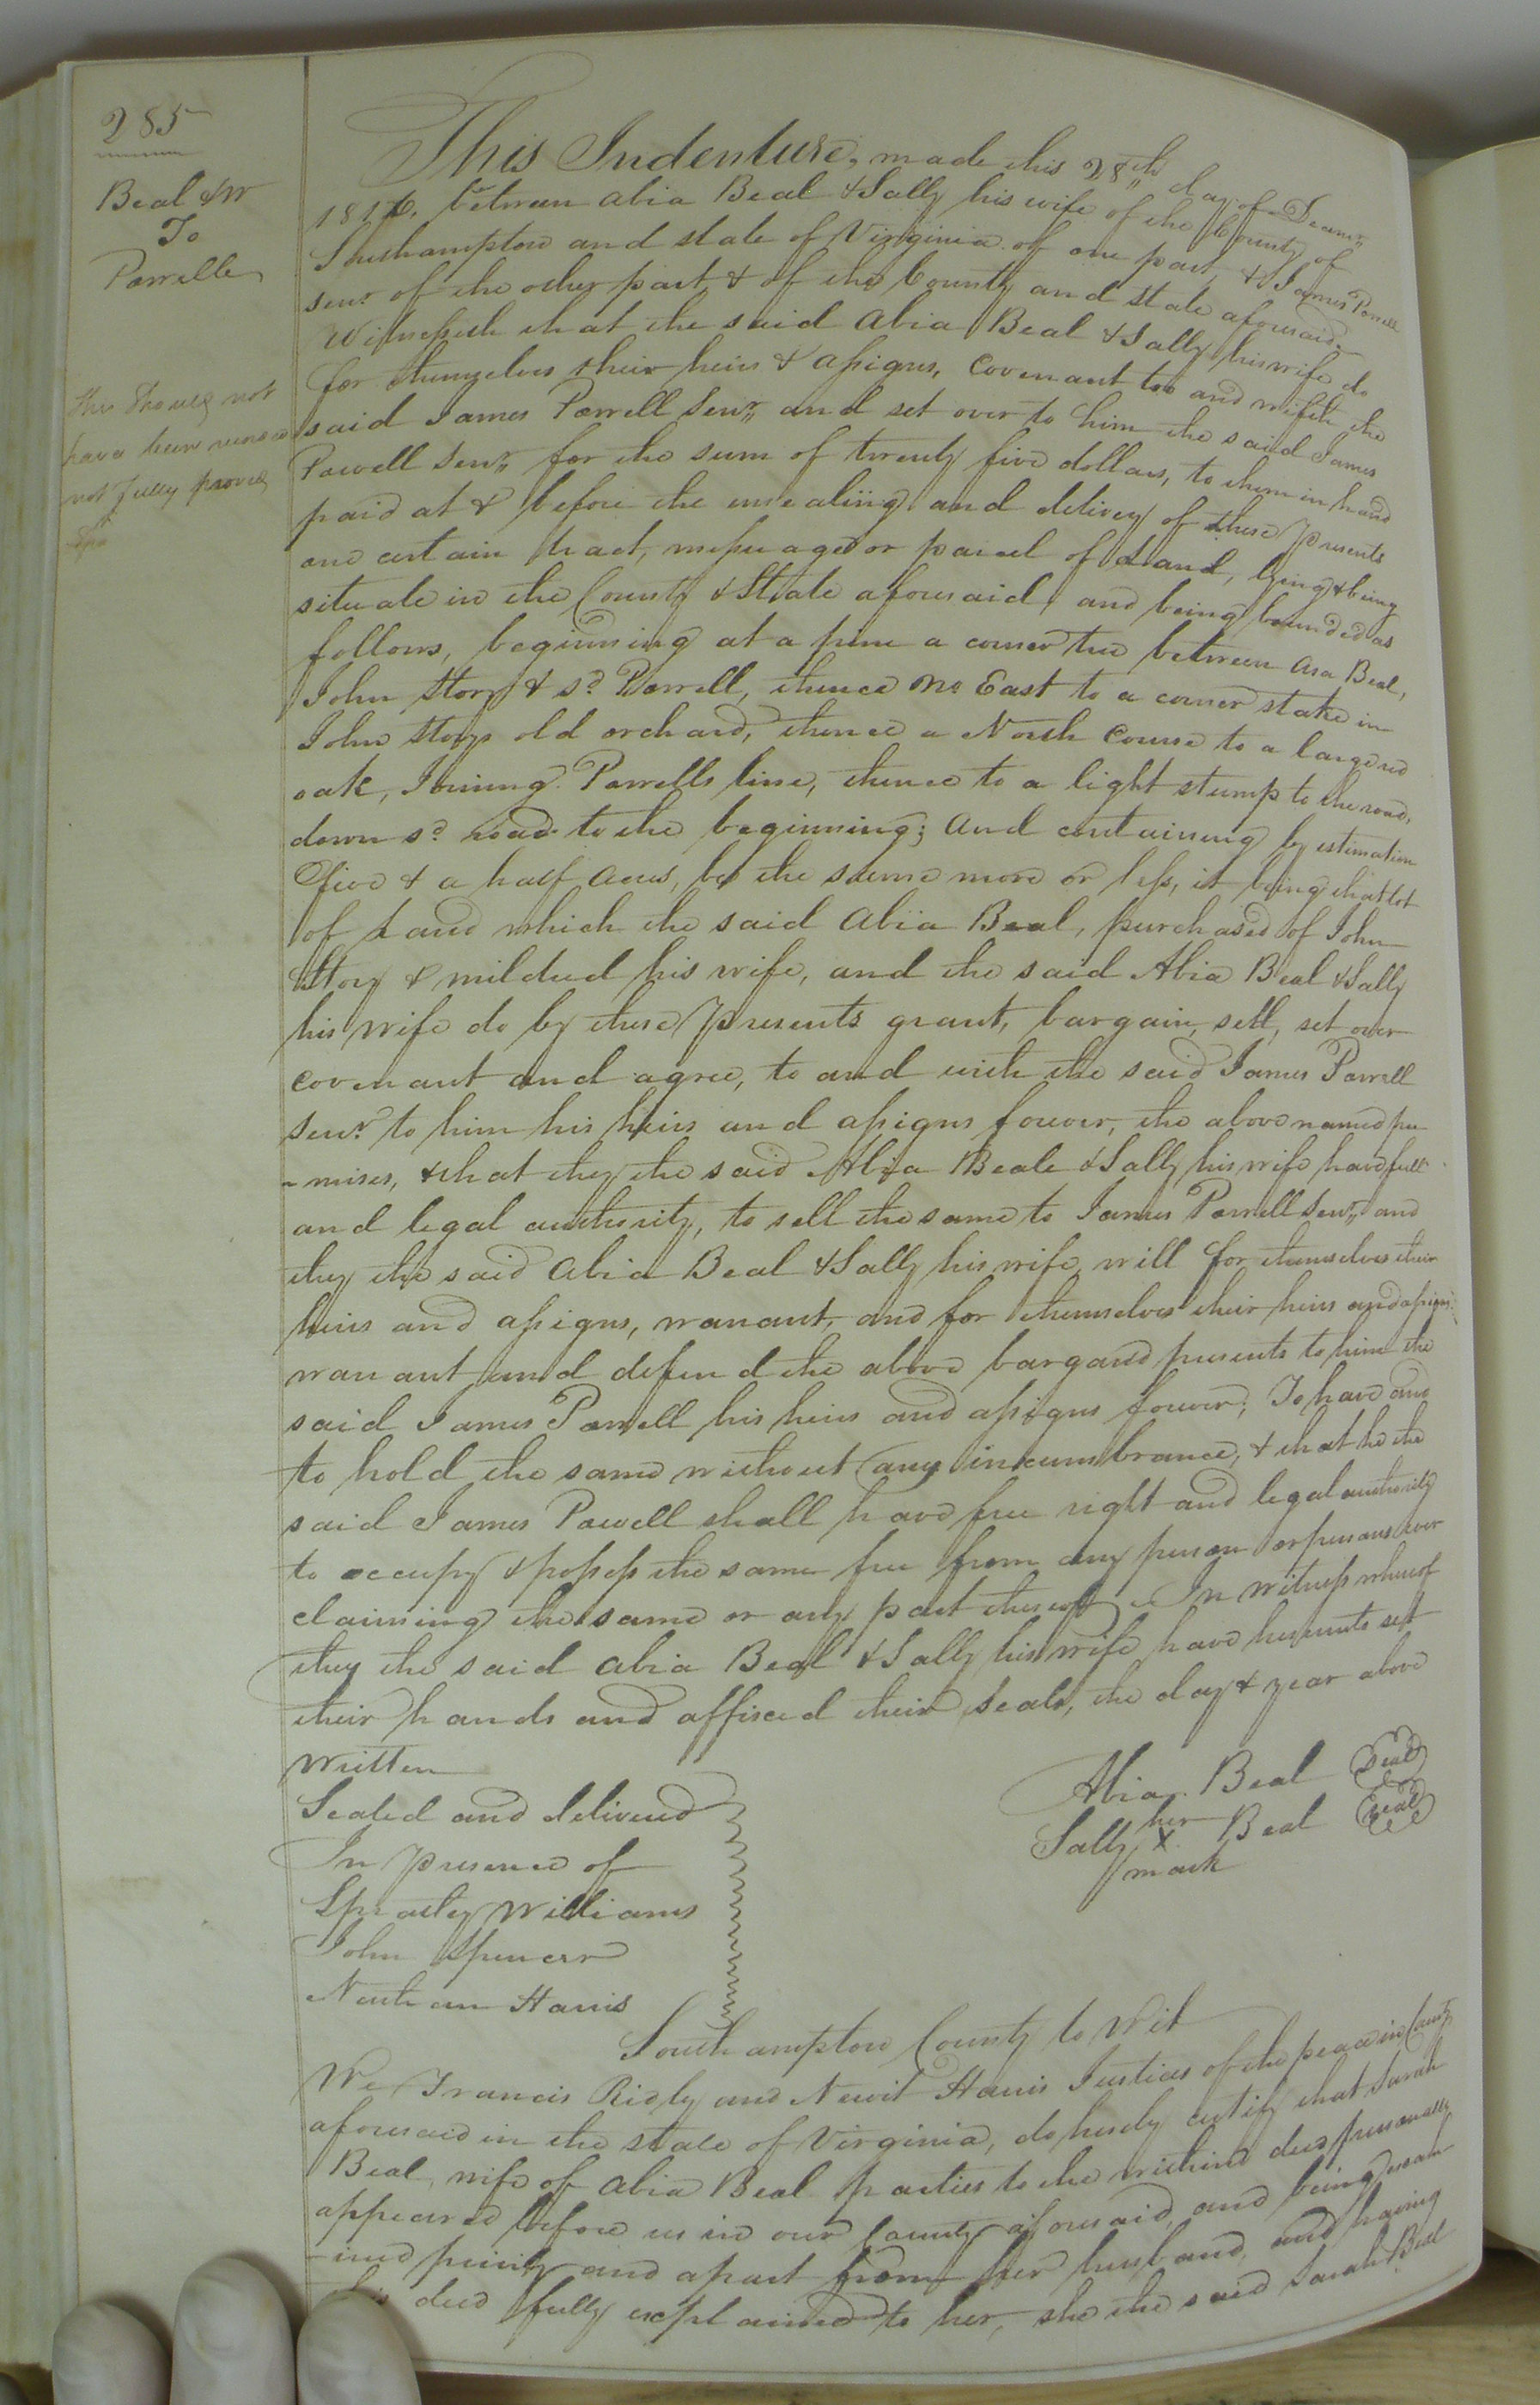 285
Beal & W
To
Powell
This Should not
have been recorded
not fully proved
This Indenture, made this 28th day of Decemr,,
1816, between Abia Beal & Sally his wife of the County of
Southampton and state of Virginia of one part, & James Powell
senr. of the other part & of the County and state aforesaid,
Witnesseth that the said Abia Beal & Sally his wife do
for themselves their heirs & assigns, covenant too and with the
said James Powell Senr,, and set over to him the said James
Powell Senr,, for the sum of twenty five dollars, to them in hand
paid at & before the ensealing and delivery of these presents
one certain tract, messuage or parcel of Land, lying & being
situate in the County & State aforesaid, and being bounded as
follows, beginning at a pine a corner tree between Asa Beal,
John Story & sd. Powell, thence No East to a corner stake in
John Storys old orchard, thence a North Course to a large red
oak, Joining Powells line, thence to a light stump to the road,
down sd. road to the beginning; and containing by estimation
five & a half acres, be the same more or less, it being that lot
of Land which the said Abia Beal, purchased of John
Story & mildred his wife, and the said Abia Beal & Sally
his wife do by these presents grant, bargain, sell, set over
covenant and agree, to and with the said James Powell
Senr. to him his heirs and assigns forever, the above named pre
-mises, & that they the said Abia Beale & Sally his wife have full
and legal authority, to sell the same to James Powell Senr,, and
they the said Abia Beal & Sally his wife will for themselves their
heirs and assigns, warrant, and for themselves their heirs and assigns
warrant and defend the above bargand presents to him the
said James Powell his heirs and assigns forever; To have and
to hold the same without any incumbrance, & that he the
said James Powell shall have free right and legal authority
to occupy & possess the same free from any person or persons ever
claiming the same or any part thereoff In witness whereof
they the said Abia Beal & Sally his wife have hereunto set
their hands and affixed their seals, the day & year above
written
Abia Beal Seal
Sally her X mark Beal Seal
Sealed and delivered
In presence of
Spratley Williams
John Spencer
Nathan Harris
Southampton County to Wit
We Francis Ridly and Newit Harris Justices of the peace in County
aforesaid in the state of Virginia, do hereby certify that Sarah
Beal, wife of Abia Beal parties to the within deed personally
appeared before us in our County aforesaid, and being exam
-ined privily and apart from her husband, and having
this deed fully explained to her, she the said Sarah Beal